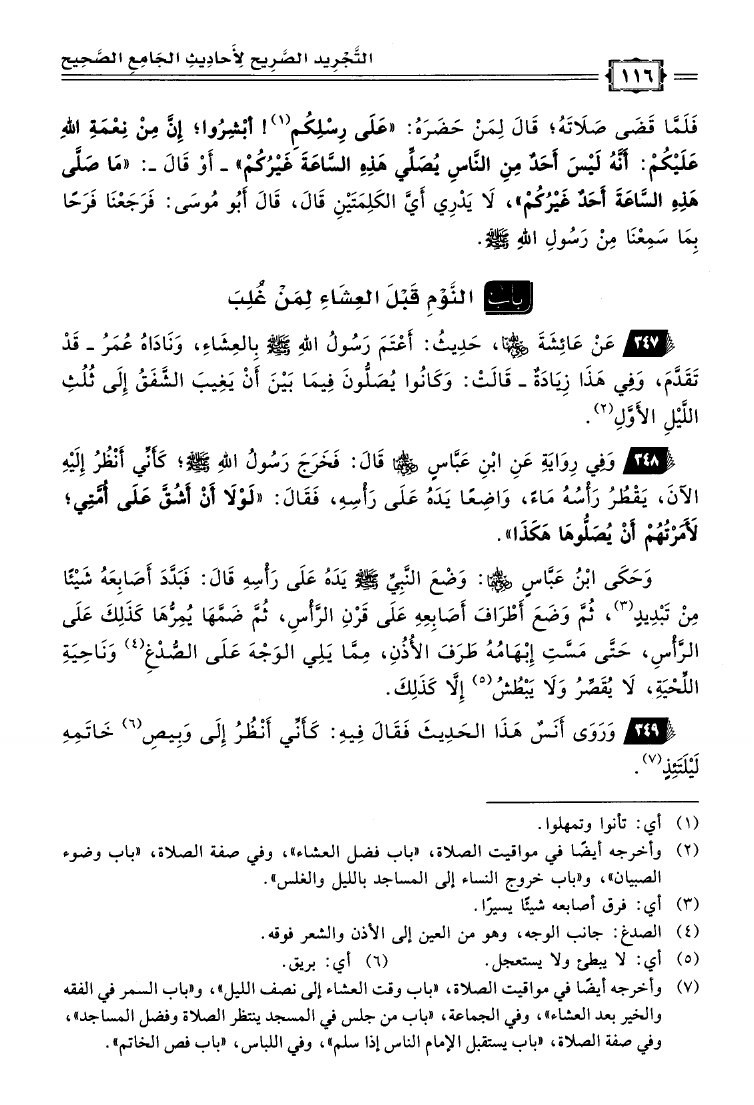 التَّجْرِيد الصَّرِيح لِأَحادِيثِ الجَامِعِ الصَّحِيح
١١٦
فَلَمَّا قَضَى صَلَاتَهُ؛ قَالَ لِمَنْ حَضَرَهُ: «عَلَى رِسْلِكُمْ(١)! أَبْشِرُوا؛ إِنَّ مِنْ نِعْمَةِ اللهِ
عَلَيْكُمْ: أَنَّهُ لَيْسَ أَحَدٌ مِنَ النَّاسِ يُصَلِّي هَذِهِ السَّاعَةَ غَيْرُكُمْ» ـ أَوْ قَالَ ـ: «مَا صَلَّى
هَذِهِ السَّاعَةَ أَحَدٌ غَيْرُكُمْ»، لَا يَدْرِي أَيَّ الكَلِمَتَيْنِ قَالَ، قَالَ أَبُو مُوسَى: فَرَجَعْنَا فَرَحًا
بِمَا سَمِعْنَا مِنْ رَسُولِ اللهِ ﷺ.
باب النَّوْمِ قَبْلَ العِشَاءِ لِمَنْ غُلِبَ
٣٤٧ عَنْ عَائِشَةَ رضي الله عنها، حَدِيثُ: أَعْتَمَ رَسُولُ اللهِ ﷺ بِالعِشَاءِ، وَنَادَاهُ عُمَرُ ـ قَدْ
تَقَدَّمَ، وَفِي هَذَا زِيَادَةٌ ـ قَالَتْ: وَكَانُوا يُصَلُّونَ فِيمَا بَيْنَ أَنْ يَغِيبَ الشَّفَقُ إِلَى ثُلُثِ
اللَّيْلِ الأَوَّلِ(٢).
٣٤٨ وَفِي رِوَايَةٍ عَنِ ابْنِ عَبَّاسٍ رضي الله عنهما قَالَ: فَخَرَجَ رَسُولُ اللهِ ﷺ؛ كَأَنِّي أَنْظُرُ إِلَيْهِ
الآنَ، يَقْطُرُ رَأْسُهُ مَاءً، وَاضِعًا يَدَهُ عَلَى رَأْسِهِ، فَقَالَ: «لَوْلَا أَنْ أَشُقَّ عَلَى أُمَّتِي؛
لَأَمَرْتُهُمْ أَنْ يُصَلُّوهَا هَكَذَا».
وَحَكَى ابْنُ عَبَّاسٍ رضي الله عنهما: وَضْعَ النَّبِيِّ ﷺ يَدَهُ عَلَى رَأْسِهِ قَالَ: فَبَدَّدَ أَصَابِعَهُ شَيْئًا
مِنْ تَبْدِيدٍ(٣)، ثُمَّ وَضَعَ أَطْرَافَ أَصَابِعِهِ عَلَى قَرْنِ الرَّأْسِ، ثُمَّ ضَمَّهَا يُمِرُّهَا كَذَلِكَ عَلَى
الرَّأْسِ، حَتَّى مَسَّتِ إِبْهَامُهُ طَرَفَ الأُذُنِ، مِمَّا يَلِي الوَجْهَ عَلَى الصُّدْغِ(٤) وَنَاحِيَةِ
اللِّحْيَةِ، لَا يُقَصِّرُ وَلَا يَبْطُشُ(٥) إِلَّا كَذَلِكَ.
٣٤٩ وَرَوَى أَنَسٌ هَذَا الحَدِيثَ فَقَالَ فِيهِ: كَأَنِّي أَنْظُرُ إِلَى وَبِيصِ(٦) خَاتَمِهِ
لَيْلَتَئِذٍ(٧).
(١) أي: تأنوا وتمهلوا.
(٢) وأخرجه أيضًا في مواقيت الصلاة، «باب فضل العشاء»، وفي صفة الصلاة، «باب وضوء
الصبيان»، و«باب خروج النساء إلى المساجد بالليل والغلس».
(٣) أي: فرق أصابعه شيئًا يسيرًا.
(٤) الصدغ: جانب الوجه، وهو من العين إلى الأذن والشعر فوقه.
(٥) أي: لا يبطئ ولا يستعجل. (٦) أي: بريق.
(٧) وأخرجه أيضًا في مواقيت الصلاة، «باب وقت العشاء إلى نصف الليل»، و«باب السمر في الفقه
والخير بعد العشاء»، وفي الجماعة، «باب من جلس في المسجد ينتظر الصلاة وفضل المساجد»،
وفي صفة الصلاة، «باب يستقبل الإمام الناس إذا سلم»، وفي اللباس، «باب فص الخاتم».